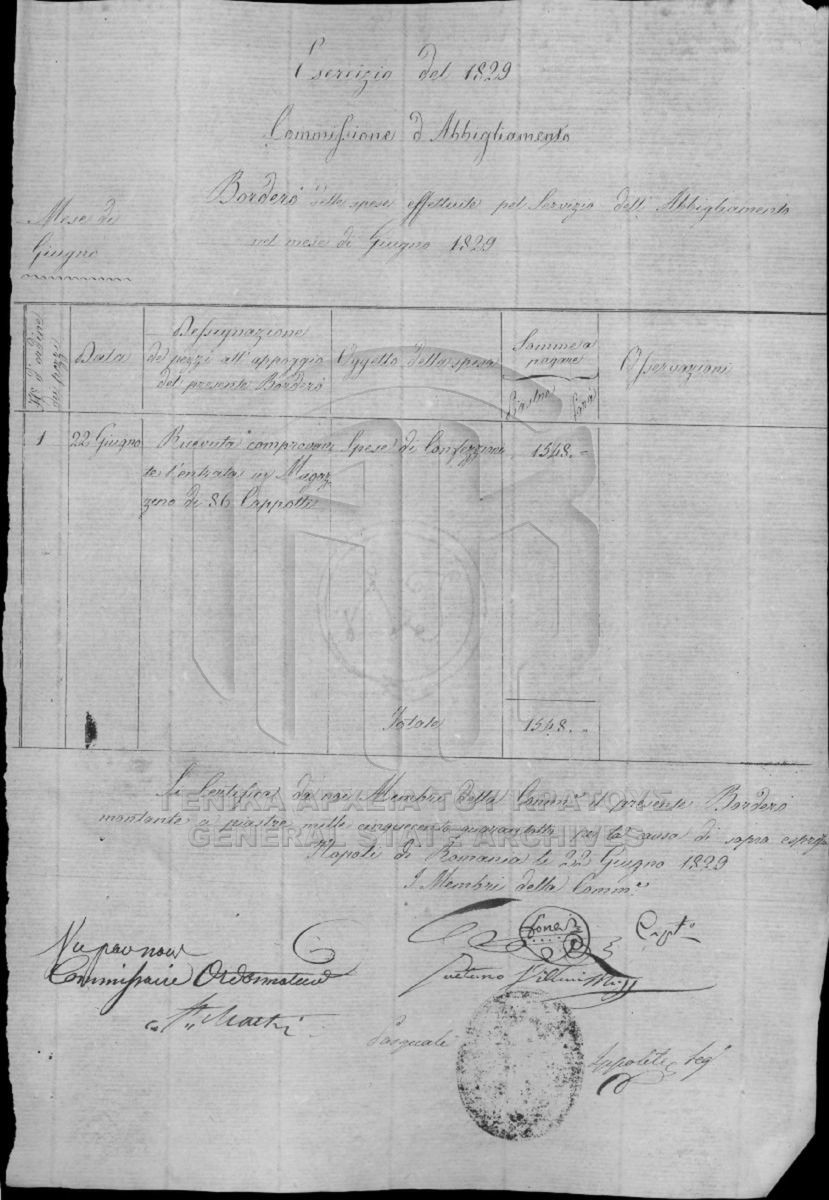 Esercizio del 1829
Commissione d'Abbigliamento
Borderó delle spese effettuate pel Servizio dell'Abbigliamento
nel mese di Giugno 1829
Mese di
Giugno
Nº d'ordine
dei pezzi
Data
Dessignazione
de pezzi all'appoggio
del presente Borderó
Oggetto della spesa
Somme a
pagare
Piastre
Parà
Osservazioni
1
22 Giugno
Ricevuta comprovan
te l'entrata in Magaz
zeno di 86 Cappotti
Spese di Confezzione
1548.-
Totale
1548.-
Si Certifica da noi Membri della Comm.e il presente Borderó
montante a piastre mille cinquecento quarantotto per la causa di sopra espressa
Napoli di Romania le 22 Giugno 1829
I Membri della Comm.e
Vu par nous
Commissaire Ordonnateur
Gaetano
Pasquale
Ippolite
ΓΕΝΙΚΑ ΑΡΧΕΙΑ ΤΟΥ ΚΡΑΤΟΥΣ
GENERAL STATE ARCHIVES